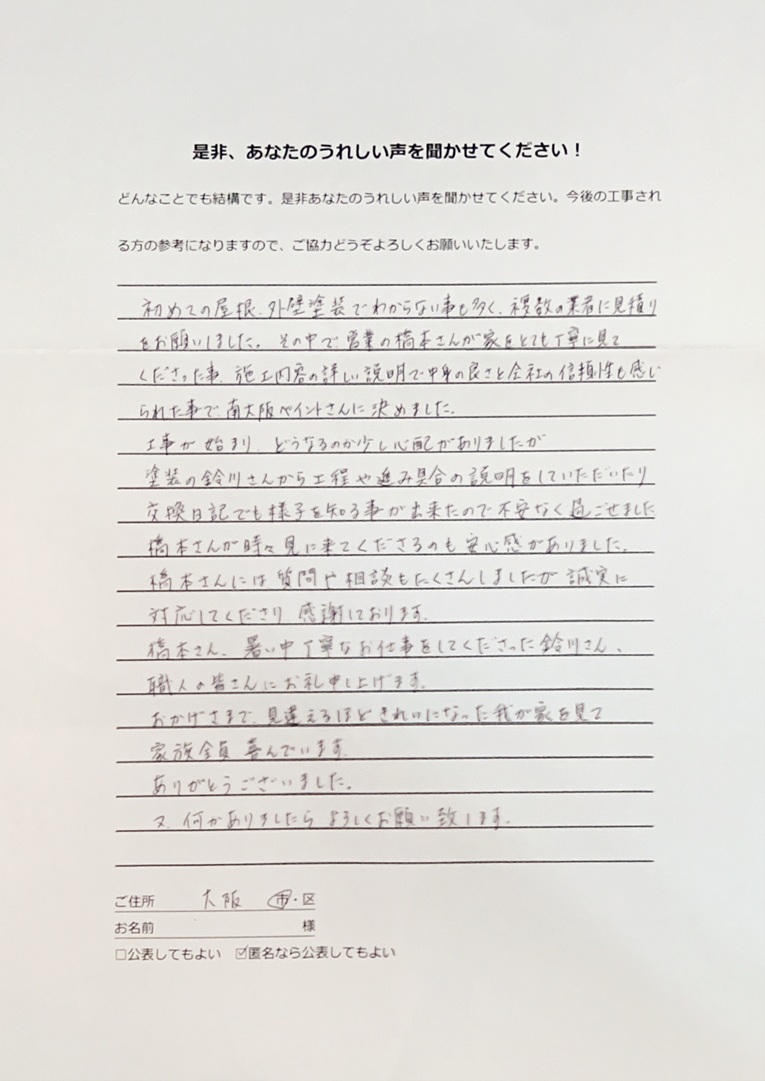 是非、あなたのうれしい声を聞かせてください！
どんなことでも結構です。是非あなたのうれしい声を聞かせてください。今後の工事され
る方の参考になりますので、ご協力どうぞよろしくお願いいたします。
初めての屋根、外壁塗装でわからない事も多く、複数の業者に見積り
をお願いしました。その中で営業の橋本さんが家をとても丁寧に見て
くださった事、施工内容の詳しい説明で中身の良さと会社の信頼性も感じ
られた事で、南大阪ペイントさんに決めました。
工事が始まり、どうなるのか少し心配がありましたが
塗装の鈴川さんから工程や進み具合の説明をしていただいたり
交換日記でも様子を知る事が出来たので不安なく過ごせました
橋本さんが時々見に来てくださるのも安心感がありました。
橋本さんには質問や相談もたくさんしましたが誠実に
対応してくださり、感謝しております。
橋本さん、暑い中丁寧なお仕事をしてくださった鈴川さん、
職人の皆さんにお礼申し上げます。
おかげさまで、見違えるほどきれいになった我が家を見て
家族全員喜んでいます。
ありがとうございました。
又、何かありましたらよろしくお願い致します。
ご住所 大阪 市・区
お名前 様
□公表してもよい ☑匿名なら公表してもよい